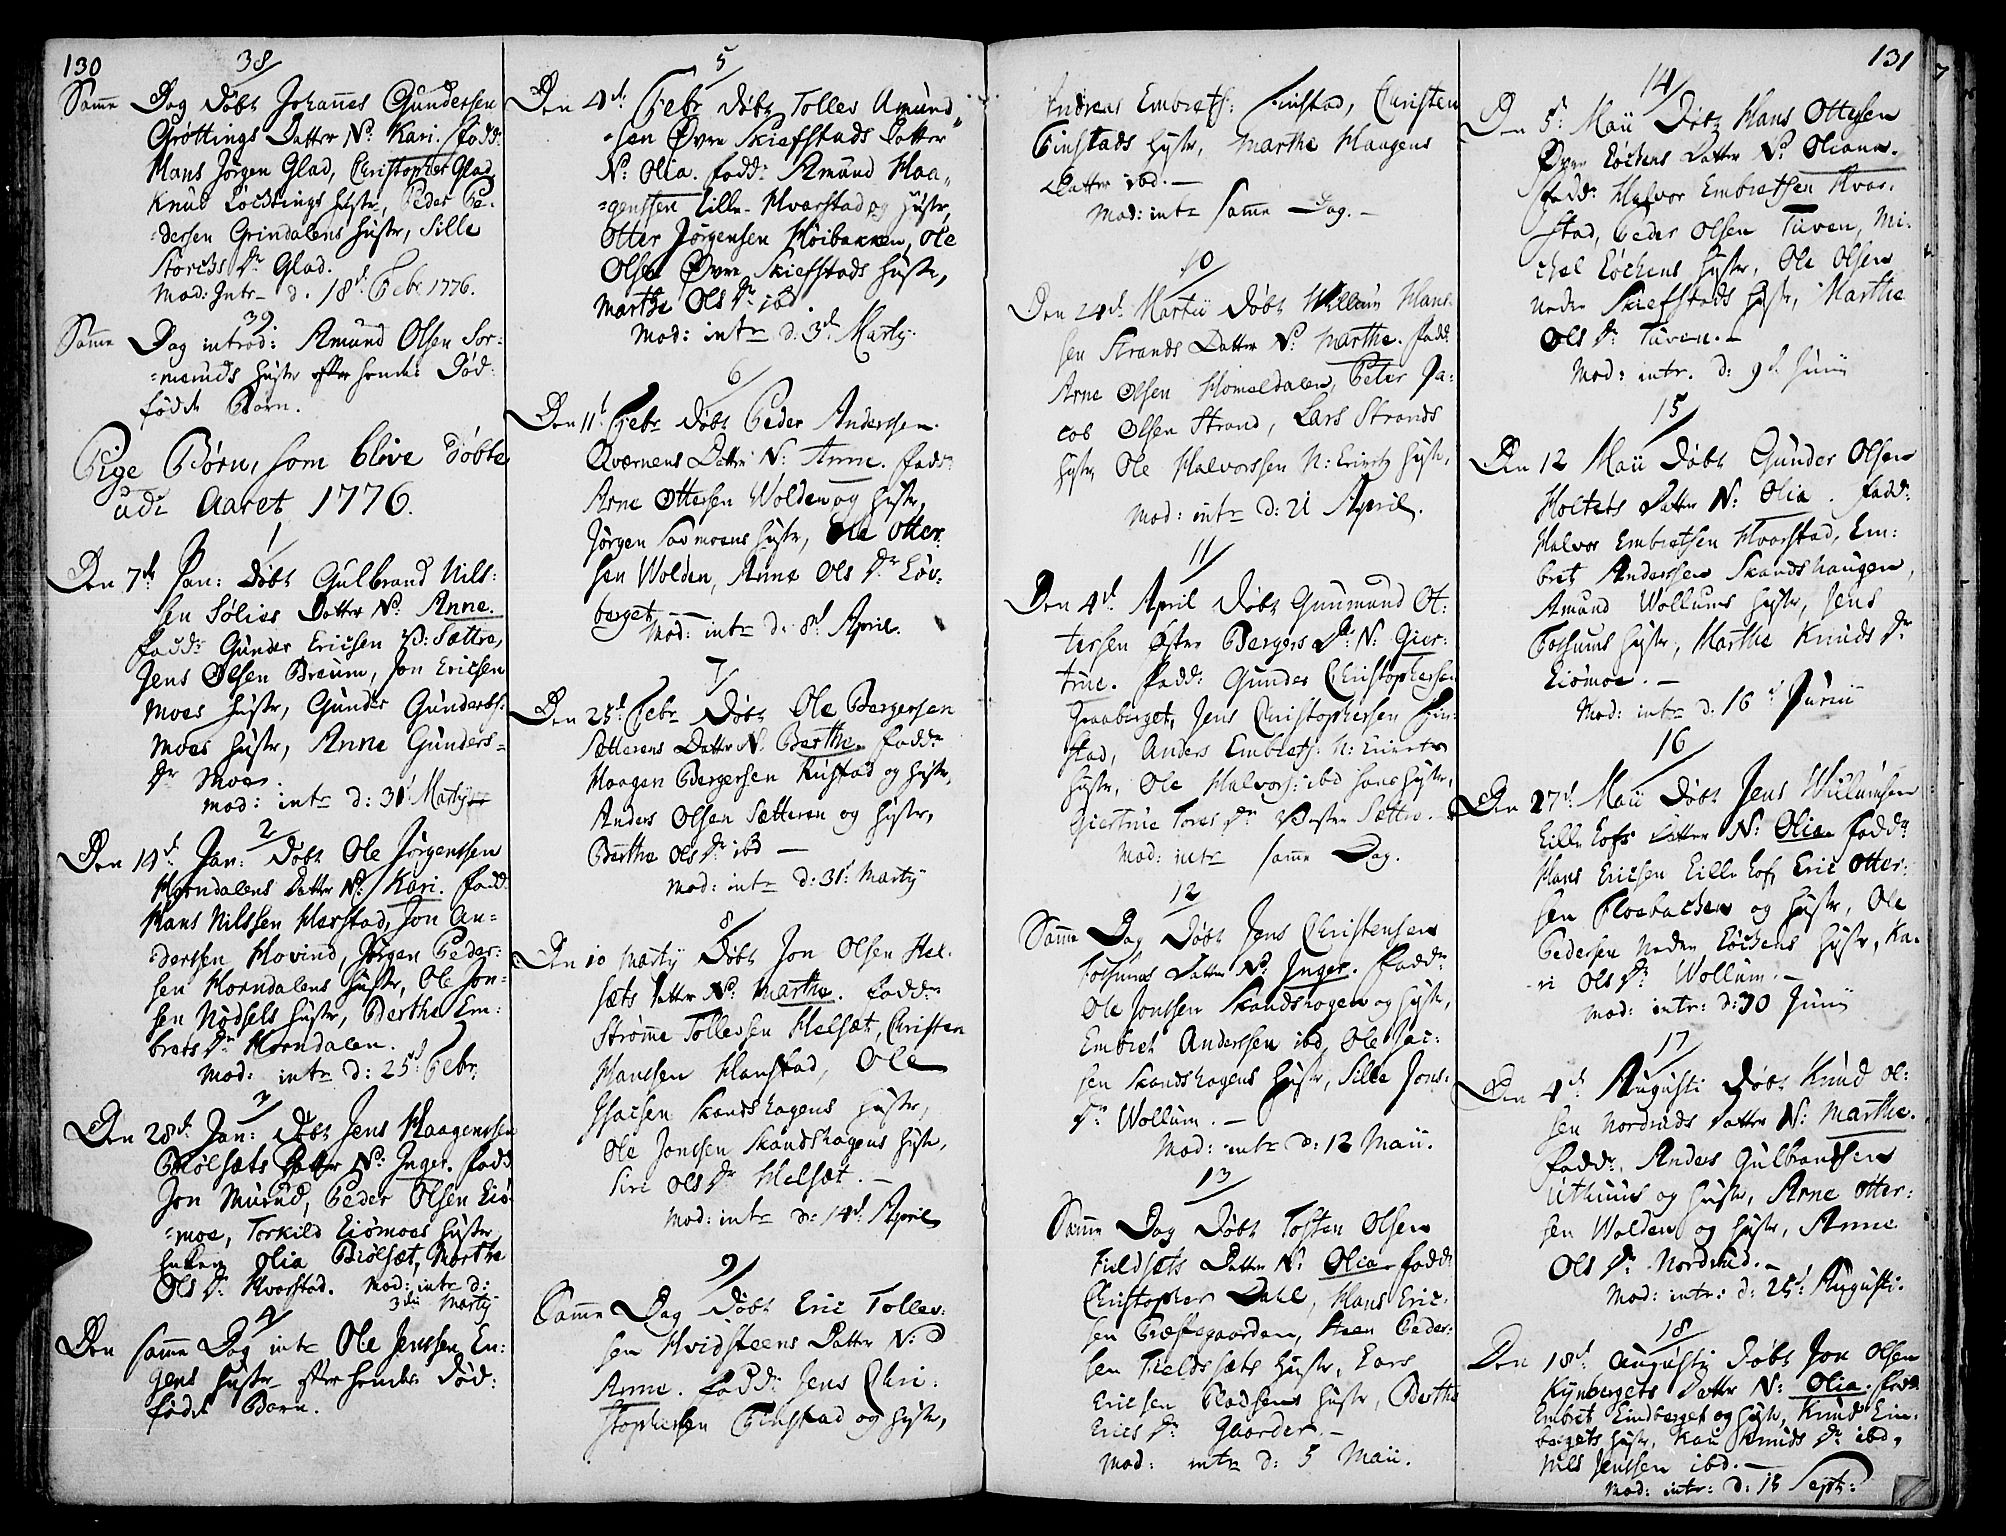 130
38
Samme Dag døbt Johannes Gundersen
Grøttings Datter N: Kari. fadd:
Hans Jørgen Glad, Christopher Glad,
Knud Löchtings Hustr, Peder Pe-
=dersen Grindalens Hustr, Sille
Storchs Dr Glad.
Mod: Intr- d. 18d Febr 1776.
39
Samme Dag introd: Amund Olsen Sor-
=meruds Hustr efter hendes Død-
født Barn.
Pige Børn, som blive døbte
udi Aaret 1776.
1
Den 7de Jan: døbt Gulbrand Nils-
sen Sølies Datter N: Anne.
fadd: Gunder Ericsen V: Sættre,
Jens Olsen Breum, Jon Ericsen
Moes Hustr, Gunder Gunders:
Moes Hustr, Anne Gunders=
Dr Moe.
Mod: intr d: 31 Marty
2
Den 14d: Jan: døbt Ole Jørgenssen
Horndalens Datter N: Kari. fadd:
Hans Nilssen Harstad, Jon An=
=derssen Hovind, Jørgen Peder=
sen Horndalens Hustr, Ole Jon-
sen Nødsels Hustr, Berthe Em-
brets Dr Horndalen.
Mod: intr d: 25d Febr.
3
Den 28d: Jan: døbt Jens Haagenssen
Biølsæts Datter N: Inger. fadd
Jon Murud, Peder Olsen Eiø-
=moe, Torkild Eiømoes Hustr
Enken Olia Biølset, Marthe
Ols Dr Hvarstad. Mod: intr d:
3die Marty
4
Den samme Dag intr Ole Jenssen En-
gens Hustr efter hendes Død-
født Barn.
5
Den 4d: Febr døbt Tollev Amund"
=sen Øvre Skiefstads Datter
N: Olia. fadd: Amund Haa"
=genssen Lille Hvarstad og Hustr,
Otter Jørgensen Høibakken, Ole
Olsen Øvre Skiefstads Hustr,
Marthe Ols Dr ibd.
Mod: intr d: 3d Marty.
6
Den 11d Febr døbt Peder Anderssen
Qværnens Datter N: Anne. fadd:
Arne Ottersen Wolden og Hustr,
Jørgen Savmoens Hustr, Ole Otter-
sen Wolden, Anne Ols Dr Löv-
berget
Mod: intr d: 8d April.
7
Den 25d: Febr døbt Ole Bergersen
Sætterens Datter N: Berthe. fadd:
Haagen Bergersen Rustad og Hustr,
Anders Olsen Sætteren og Hustr,
Berthe Ols Dr ibd —
Mod: intr d: 31 Marty
8
Den 10 Marty døbt Jon Olsen Hel-
sæts Datter N: Marthe. fadd:
Strømme Tollevsen Helsæt, Christen
Hanssen Hanstad, Ole
Isacsen Skandshagens Hustr,
Ole Jonssen Skandshagens Hustr,
Siri Ols Dr Helsæt. —
Mod: intr d: 14d April
9
Samme Dag døbt Eric Tollev-
sen Hvidsteens Datter N:
Anne. fadd: Jens Chri-
stophersen Finstad og Hustr,
131
Andreas Embrets: Finstad, Christen
Finstads Hustr, Marthe Haagens
Datter ibd. —
Mod: intr samme Dag. —
10
Den 24d: Martii døbt Willum Hans-
sen Strands Datter N: Marthe. fadd:
Arne Olsen Homeldalen, Peter Ja-
cob Olsen Strand, Lars Strands
Hustr, Ole Halvorssen N: Hustr,
Mod: intr d: 21 April.
11
Den 4d: April døbt Gunmund Ot-
tersen Øster Bergers Dr N: Gier-
true. fadd: Gunder Christophersen
Graaberget, Jens Christophersen Fin-
stad, Anders Embrets: N:
Hustr, Ole Halvors: ibd hans Hustr,
Giertrue Tores Dr Vester Sættre.
Mod: intr samme Dag.
12
Samme Dag døbt Jens Christensen
Fossums Datter N: Inger. fadd:
Ole Jonssen Skandshagen og Hustr,
Embret Anderssen ibd, Ole Isac-
sen Skandshagens Hustr, Sille Jons-
Dr Wollum. —
Mod: intr d: 12 Maii.
13
Samme Dag døbt Tosten Olsen
Fieldsæts Datter N: Olia. fadd:
Christopher Dahl, Hans Eric-
sen Præstegaarden, Steen Peder-
sen Fieldssæts Hustr, Lars
Ericsen Pladsens Hustr, Berthe
Erics Dr Gaarder. —
Mod: intr d: 5 Maii.
14
Den 5: Maii døbt Hans Ottesen
Øvre Løchens Datter N: Oliana.
fadd: Halvor Embretsen Hvar-
stad, Peder Olsen Tuven, Mi-
chel Løchens Hustr, Ole Olsen
neder Skiefstads Hustr, Marthe
Ols Dr Tuven. —
Mod: intr. d: 9d Junii
15
Den 12 Maii døbt Gunder Olsen
Holtets Datter N: Olia. fadd:
Halvor Embretsen Hvarstad, Em-
bret Anderssen Skandshaugen,
Amund Wollums Hustr, Jens
Fossums Hustr, Marthe Knuds Dr
Eiømoe. —
Mod: intr d: 16d Junii
16
Den 27d: Maii døbt Jens Willumsen
Lille Lofs Datter N: Olia. fadd:
Hans Ericsen Lille Lof, Eric Otter-
sen Floebachen og Hustr, Ole
Pedersen Neder Løchens Hustr, Ka-
-ri Ols Dr Wollum. —
Mod: intr: d: 30 Junij
17
Den 4d: Augusti døbt Knud Ol-
sen Nordruds Datter N: Marthe.
fadd: Anders Gulbrandsen
Uthuus og Hustr, Arne Otter-
sen Wolden og Hustr, Anne
Ols Dr Nordrud. —
Mod: intr: d: 25d: Augusti.
18
Den 18d: Augusti døbt Jon Olsen
Kynbergets Datter N: Olia. fadd
Embret Eindberget og Hustr, Knud Ein-
bergets Hustr, Kari Knuds Dr ibd,
Nils Jenssen ibd. —
Mod: intr: d: 15 Sept: